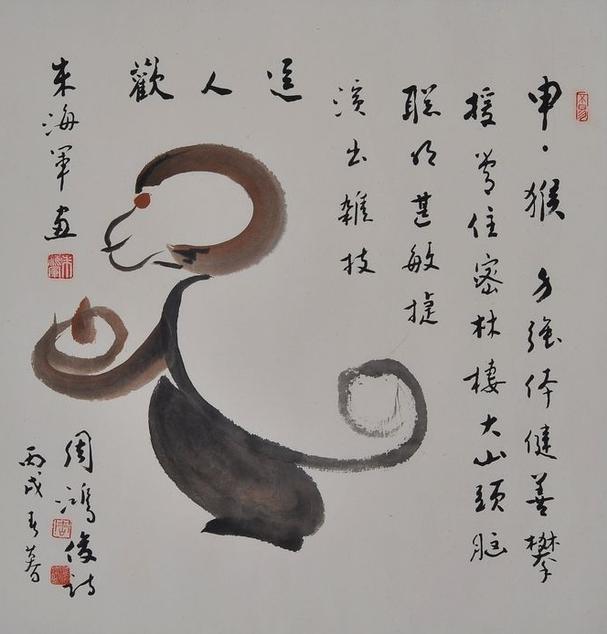 申·猴 力强体健善攀
援常住密林棲大山頭脑
聪明甚敏捷
演出雜技
逗
人
歡
朱海军画
周鴻俊詩
丙戌春暮